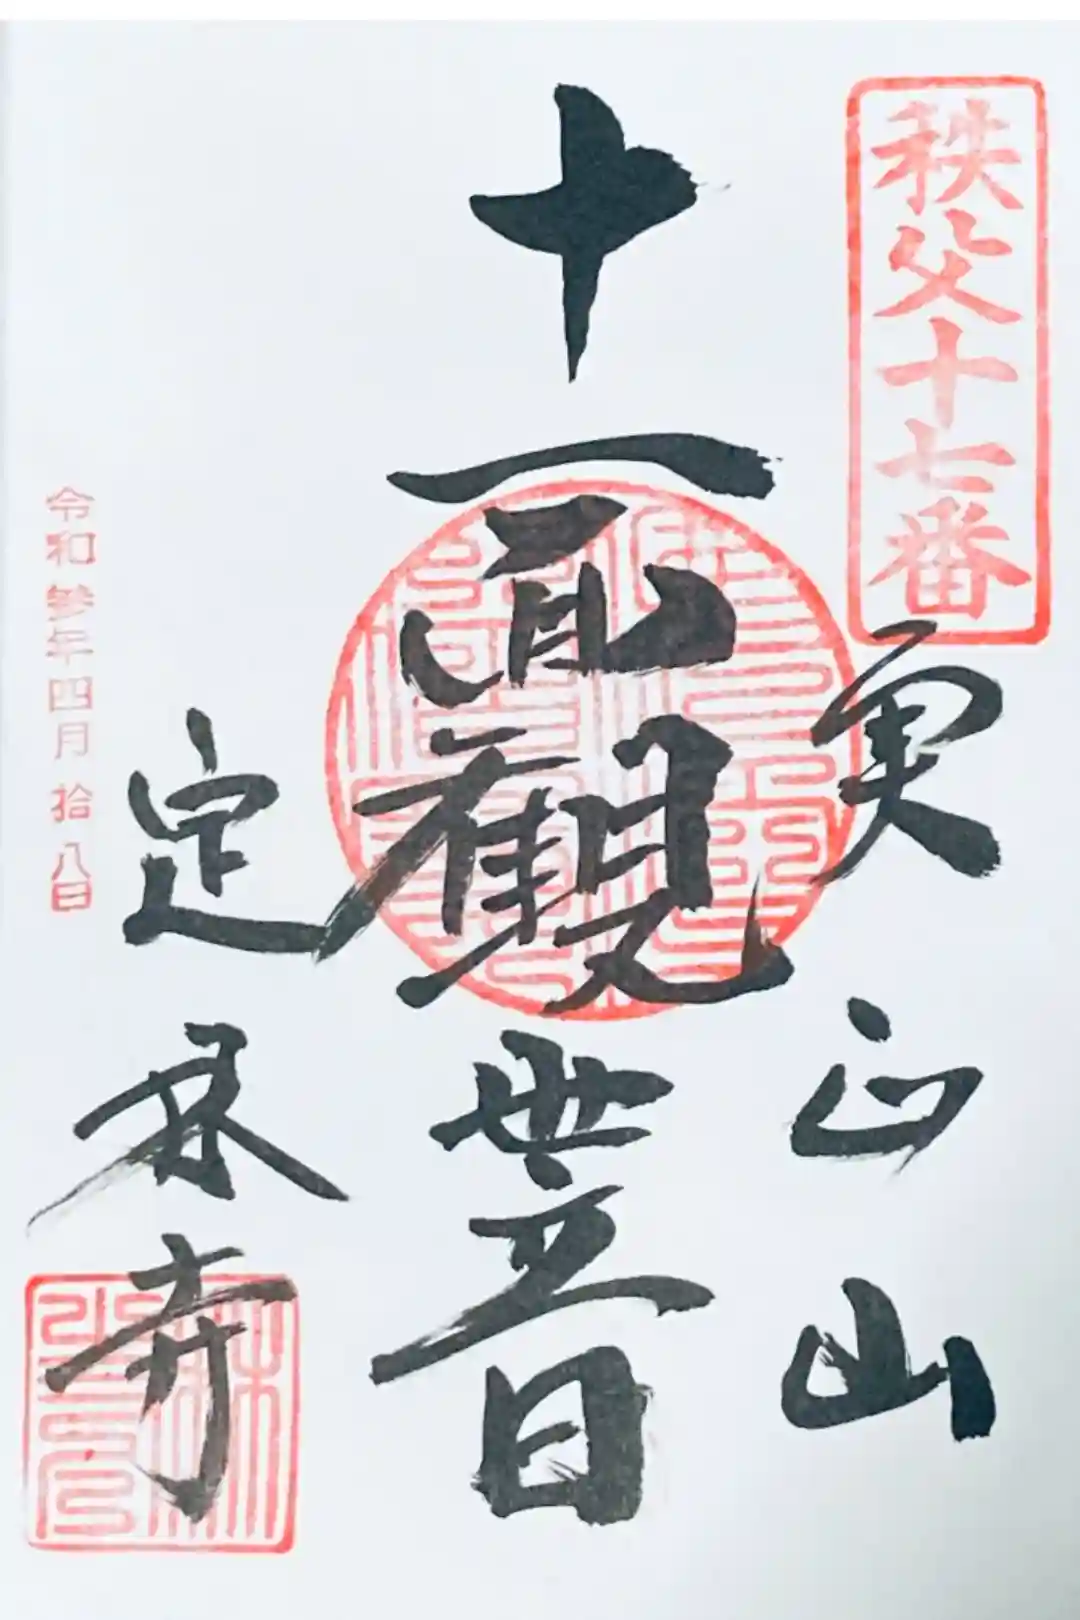 秩父十七番
実正山
十一面観世音
定林寺
令和参年四月拾八日